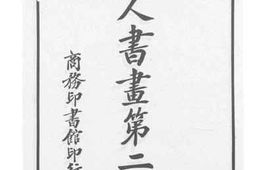 人書畫第二
商務印書館印行